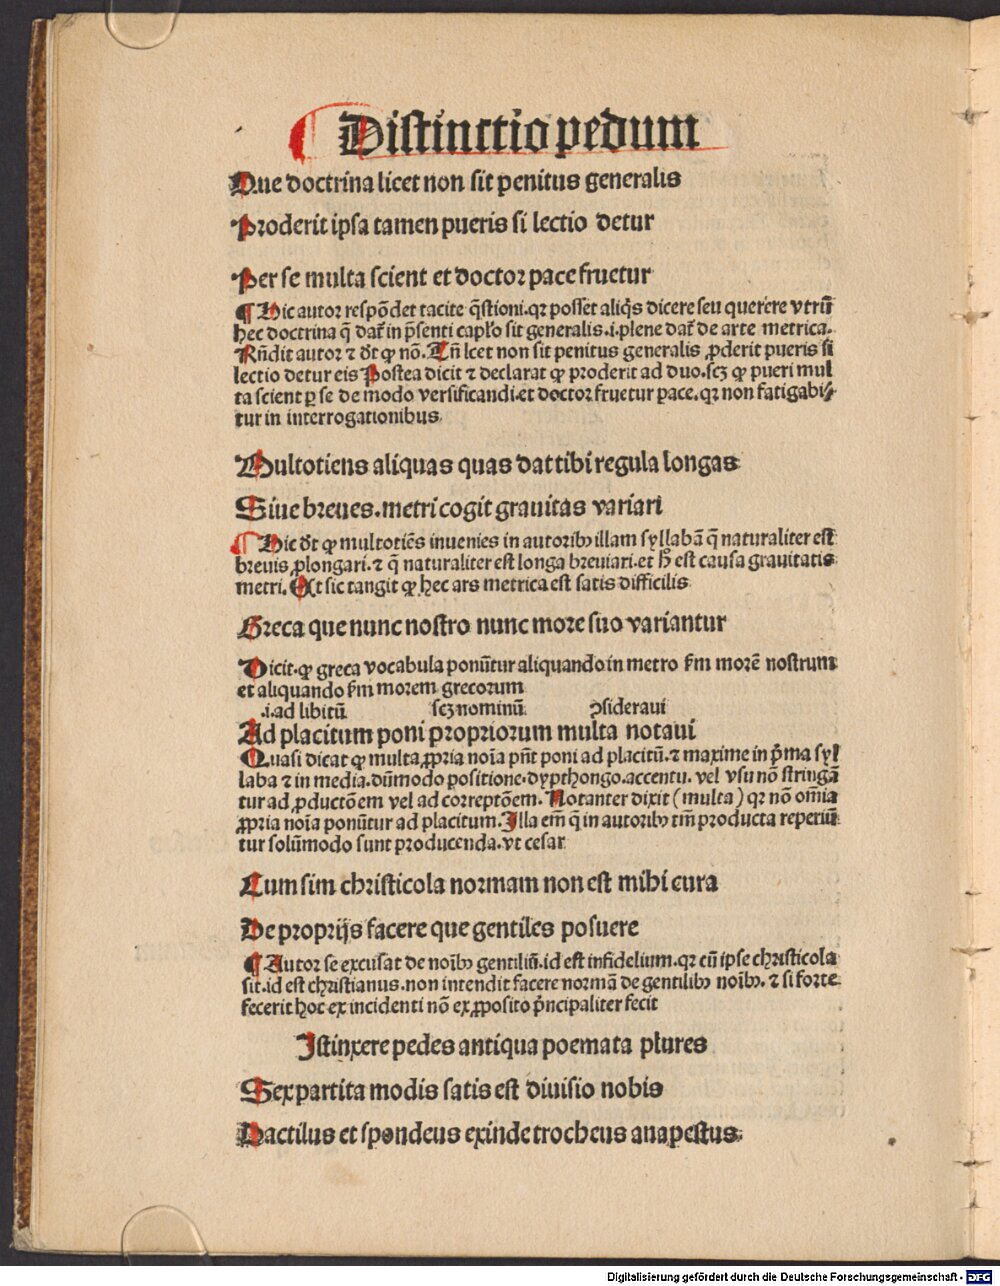 Distinctio pedum
Que doctrina licet non sit penitus generalis
Proderit ipsa tamen pueris si lectio detur
Per se multa scient et doctor pace fruetur
¶ Hic autor respōdet tacite q̄stioni.qꝛ posset aliq̇s dicere seu querere vtrū
hec doctrina q̄ daꝉ in p̄senti capꝉo sit generalis.i.plene daꝉ de arte metrica.
Rn̄dit autor ⁊ dꝉ ꝙ nō. Tn̄ lcet non sit penitus generalis ꝓderit pueris si
lectio detur eis Postea dicit ⁊ declarat ꝙ proderit ad duo.scꝫ ꝙ pueri mul
ta scient ꝑ se de modo versificandi.et doctor fruetur pace.qꝛ non fatigabi⸗
tur in interrogationibus
Multotiens aliquas quas dat tibi regula longas
Siue breues.metri cogit grauitas variari
¶ Hic dꝉ ꝙ multotiēs inuenies in autoribꝰ illam syllabā q̄ naturaliter est
breuis ꝓlongari.⁊ q̄ naturaliter est longa breuiari.et h̄ est causa grauitatis
metri. Et sic tangit ꝙ hec ars metrica est satis difficilis
Greca que nunc nostro nunc more suo variantur
Dicit.ꝙ greca vocabula ponūtur aliquando in metro fm̄ morē nostrum
et aliquando fm̄ morem grecorum
.i.ad libitū scꝫ nominū ꝯsideraui
Ad placitum poni propriorum multa notaui
Quasi dicat ꝙ multa ꝓpria noīa pn̄t poni ad placitū.⁊ maxime in p̄ma syl
laba ⁊ in media.dūmodo positione.dypthongo.accentu. vel vsu nō stringā
tur ad ꝓductōem vel ad correptōem. Notanter dixit (multa) qꝛ nō om̄ia
ꝓpria noīa ponūtur ad placitum. Illa em̄ q̄ in autoribꝰ tm̄ producta reperiū
tur solūmodo sunt producenda.vt cesar
Cum sim christicola normam non est mihi cura
De proprijs facere que gentiles posuere
¶ Autor se excusat de noībꝰ gentiliū.id est infidelium.qꝛ cū ipse christicola
sit.id est christianus.non intendit facere normā de gentilibꝰ noībꝰ. ⁊ si forte
fecerit hoc ex incidenti nō ex ꝓposito p̄ncipaliter fecit
Istinxere pedes antiqua poemata plures
Sex partita modis satis est diuisio nobis
Dactilus et spondeus exinde trocheus anapestus
Digitalisierung gefördert durch die Deutsche Forschungsgemeinschaft - DFG